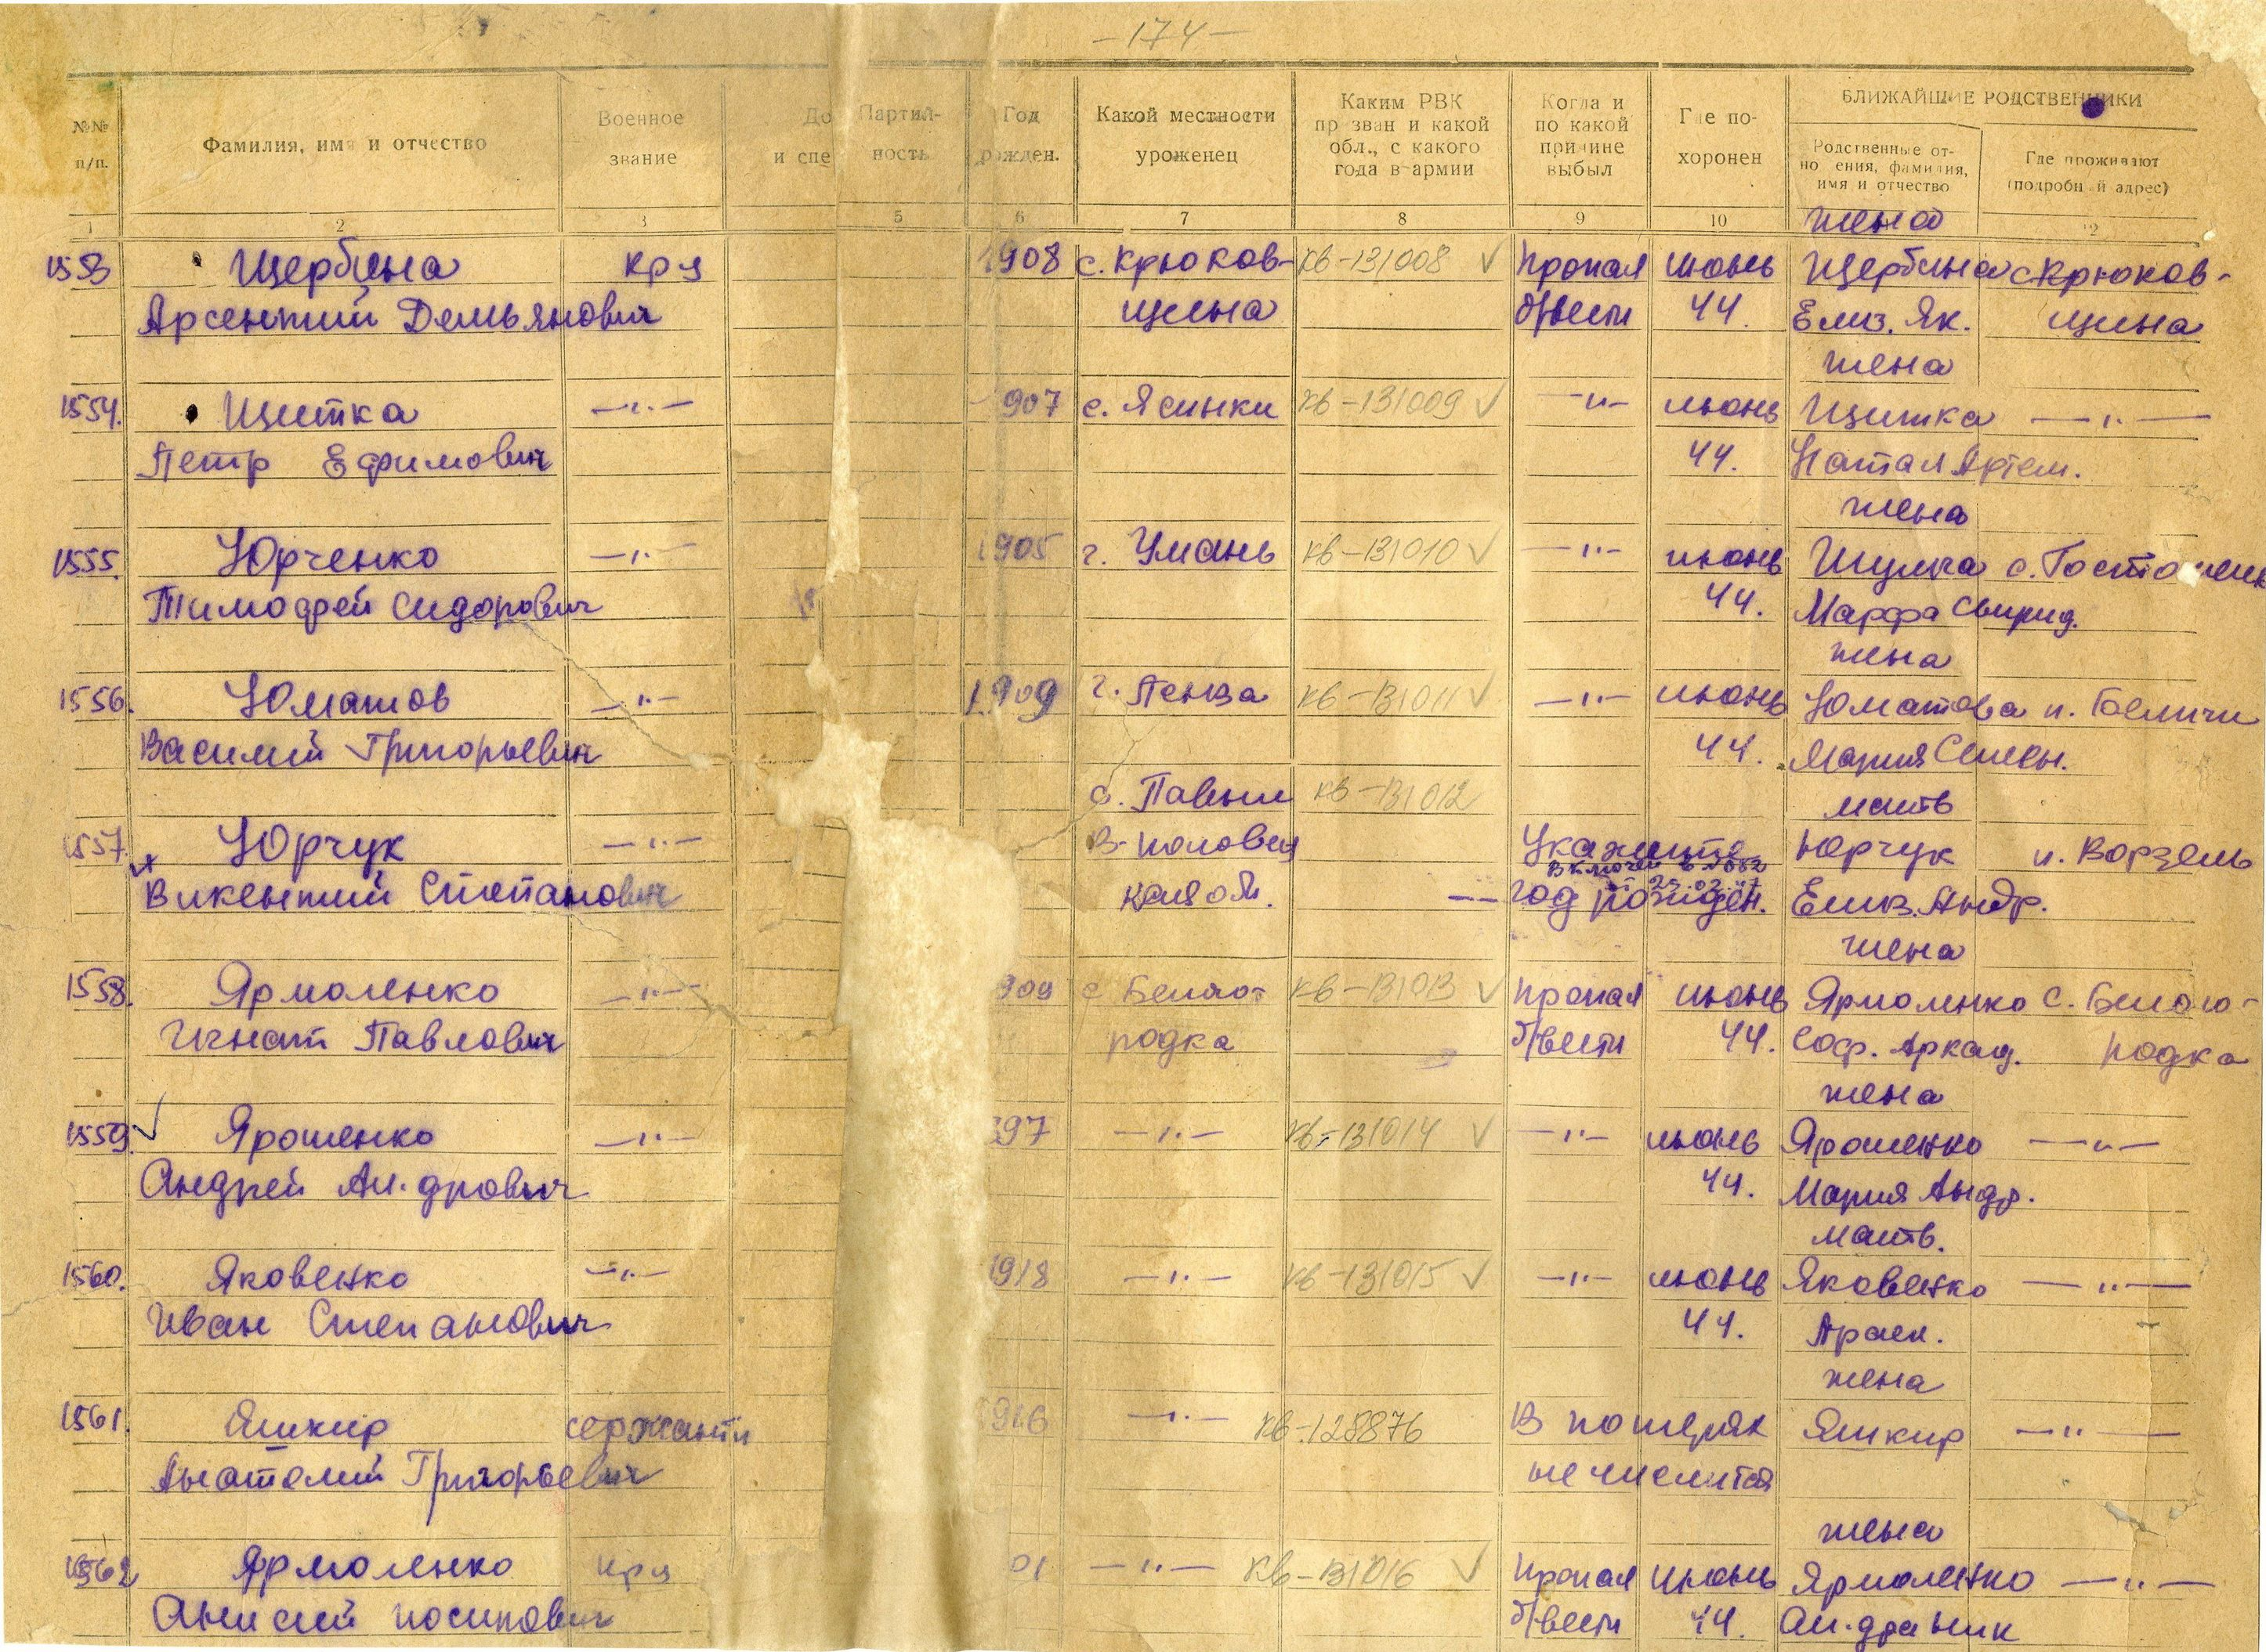 — 174 —
№№ п/п. Фамилия, имя и отчество Военное звание До и спе Партий- ность Год рожден. Какой местности уроженец Каким РВК пр зван и какой обл., с какого года в армии Когда и по какой причине выбыл Где по- хоронен БЛИЖАЙШИЕ РОДСТВЕННИКИ
Родственные от- но ения, фамилия, имя и отчество Где проживают (подробн й адрес)
1 2 3 5 6 7 8 9 10 12
жена
1553 Щербина кр-ц 1908 с. Крюков- кв-131008 ✓ Пропал июнь Щербина с Крюков-
Арсентий Демьянович щина б/вести 44. Елиз. Як. щина
жена
1554. Щитка —"— 907 с. Ясинки кв-131009 ✓ —"— июнь Щитка —"—
Петр Ефимович 44. Натал Артем.
жена
1555. Юрченко —"— 1905 г. Умань кв-131010 ✓ —"— июнь Шулга
Тимофей Сидорович 44. Марфа Свирид.
жена
1556. Юматов —"— 1909 г. Пенза кв-131011 ✓ —"— июнь Юматова п. Беличи
Василий Григорьевич 44. Мария Семен.
с. кв-131012 мать
1557. Юрчук —"— Укажите Юрчук п. Ворзель
Викентий Степанович год рожден. Елиз. Андр.
25.02.47
жена
1558. Ярмоленко —"— 909 с Белого- кв-131013 ✓ Пропал июнь Ярмоленко с. Белого-
Игнат Павлович родка б/вести 44. Соф. Аркад. родка
жена
1559. ✓ Ярошенко —"— 897 —"— кв-131014 ✓ —"— июнь Ярошенко —"—
Андрей Ан.дрович 44. Мария Андр.
мать.
1560. Яковенко —"— 1918 —"— кв-131015 ✓ —"— июнь Яковенко —"—
Иван Степанович 44.
жена
1561. Яшкир сержант 916 —"— кв-128876 В потерях Яшкир —"—
Анатолий Григорьевич не числится
жена
1562 Ярмоленко кр-ц 01 —"— кв-131016 ✓ Пропал июнь Ярмоленко —"—
Анисий Иосипович б/вести 44.